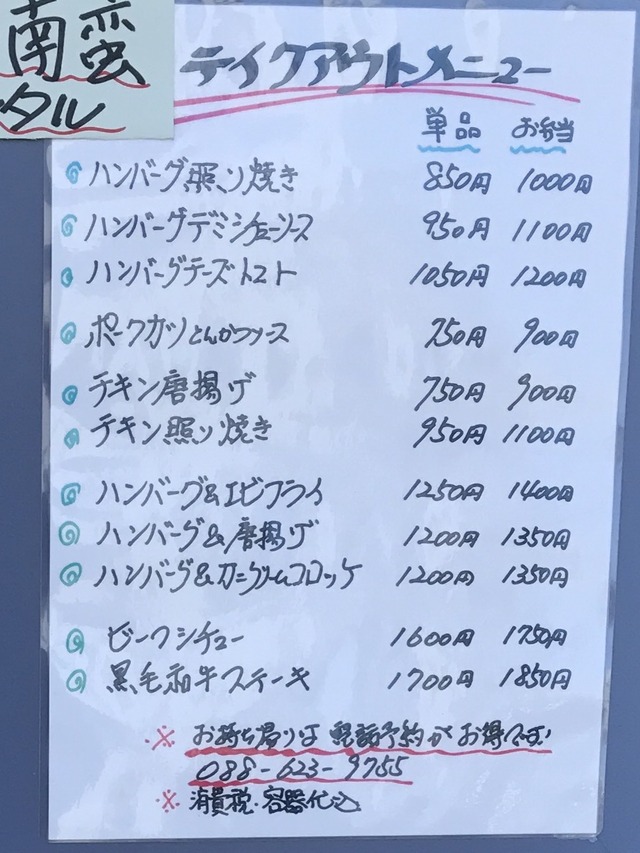 南蛮
タル
テイクアウトメニュー
単品 お弁当
ハンバーグ照り焼き 850円 1000円
ハンバーグデミシチューソース 950円 1100円
ハンバーグチーズトマト 1050円 1200円
ポークカツとんかつソース 750円 900円
チキン唐揚げ 750円 900円
チキン照り焼き 950円 1100円
ハンバーグ&エビフライ 1250円 1400円
ハンバーグ&唐揚げ 1200円 1350円
ハンバーグ&カニクリームコロッケ 1200円 1350円
ビーフシチュー 1600円 1750円
黒毛和牛ステーキ 1700円 1850円
※ お持ち帰りは電話予約がお得です!
088-623-9755
※ 消費税・容器代込